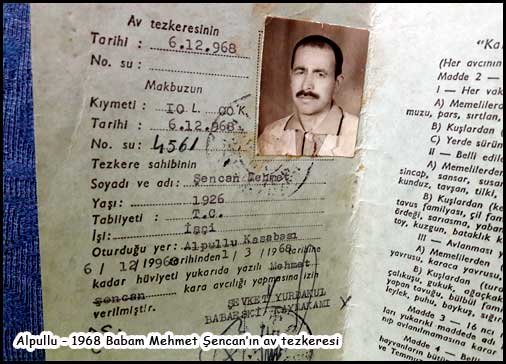 Av tezkeresinin
Tarihi : 6.12.968
No. su :
Makbuzun
Kıymeti : IO L. 00 K.
Tarihi : 6.12.968
No. su: 4561
Tezkere sahibinin
Soyadı ve adı: Şencan Mehmet
Yaşı : 1926
Tabliyeti : T.C.
İşi: İşçi
Oturduğu yer: Alpullu Kasabası
6 / 12 /1968 tarihinden 1 / 3 /1968 tarihine
kadar hüviyeti yukarıda yazılı Mehmet
Şencan kara avcılığı yapmasına izin
verilmiştir.
ŞEVKET YURDANUL
BABAESKİ KAYMAKAMI
"Ka
(Her avcının
Madde 2 —
I — Her vak
A) Memelilerd
muzu, pars, sırtlan,
B) Kuşlardan (
C) Yerde sürün
II — Belli edile
A) Memelilerden
sincap, sansar, susar
kunduz, tavşan, tilki,
B) Kuşlardan (ke
tavus familyası, çil fam
ördeği, sarıasma, yaban
toy, kuzgun, bataklık k
III — Avlanması y
A) Memelilerden
yavrusu, karaca yavrusu,
B) Kuşlardan (tura
çalıkuşu, guguk, ağaçkaka
yaban tavuğu, bülbül fam
leylek, puhu, baykuş, sığır
Madde 3 — 16 ncı m
ları yukarıki maddede adı
nıp avlanılmamasına karar
Madde 4 — Belli
hayvanların üstün
Alpullu - 1968 Babam Mehmet Şencan'ın av tezkeresi